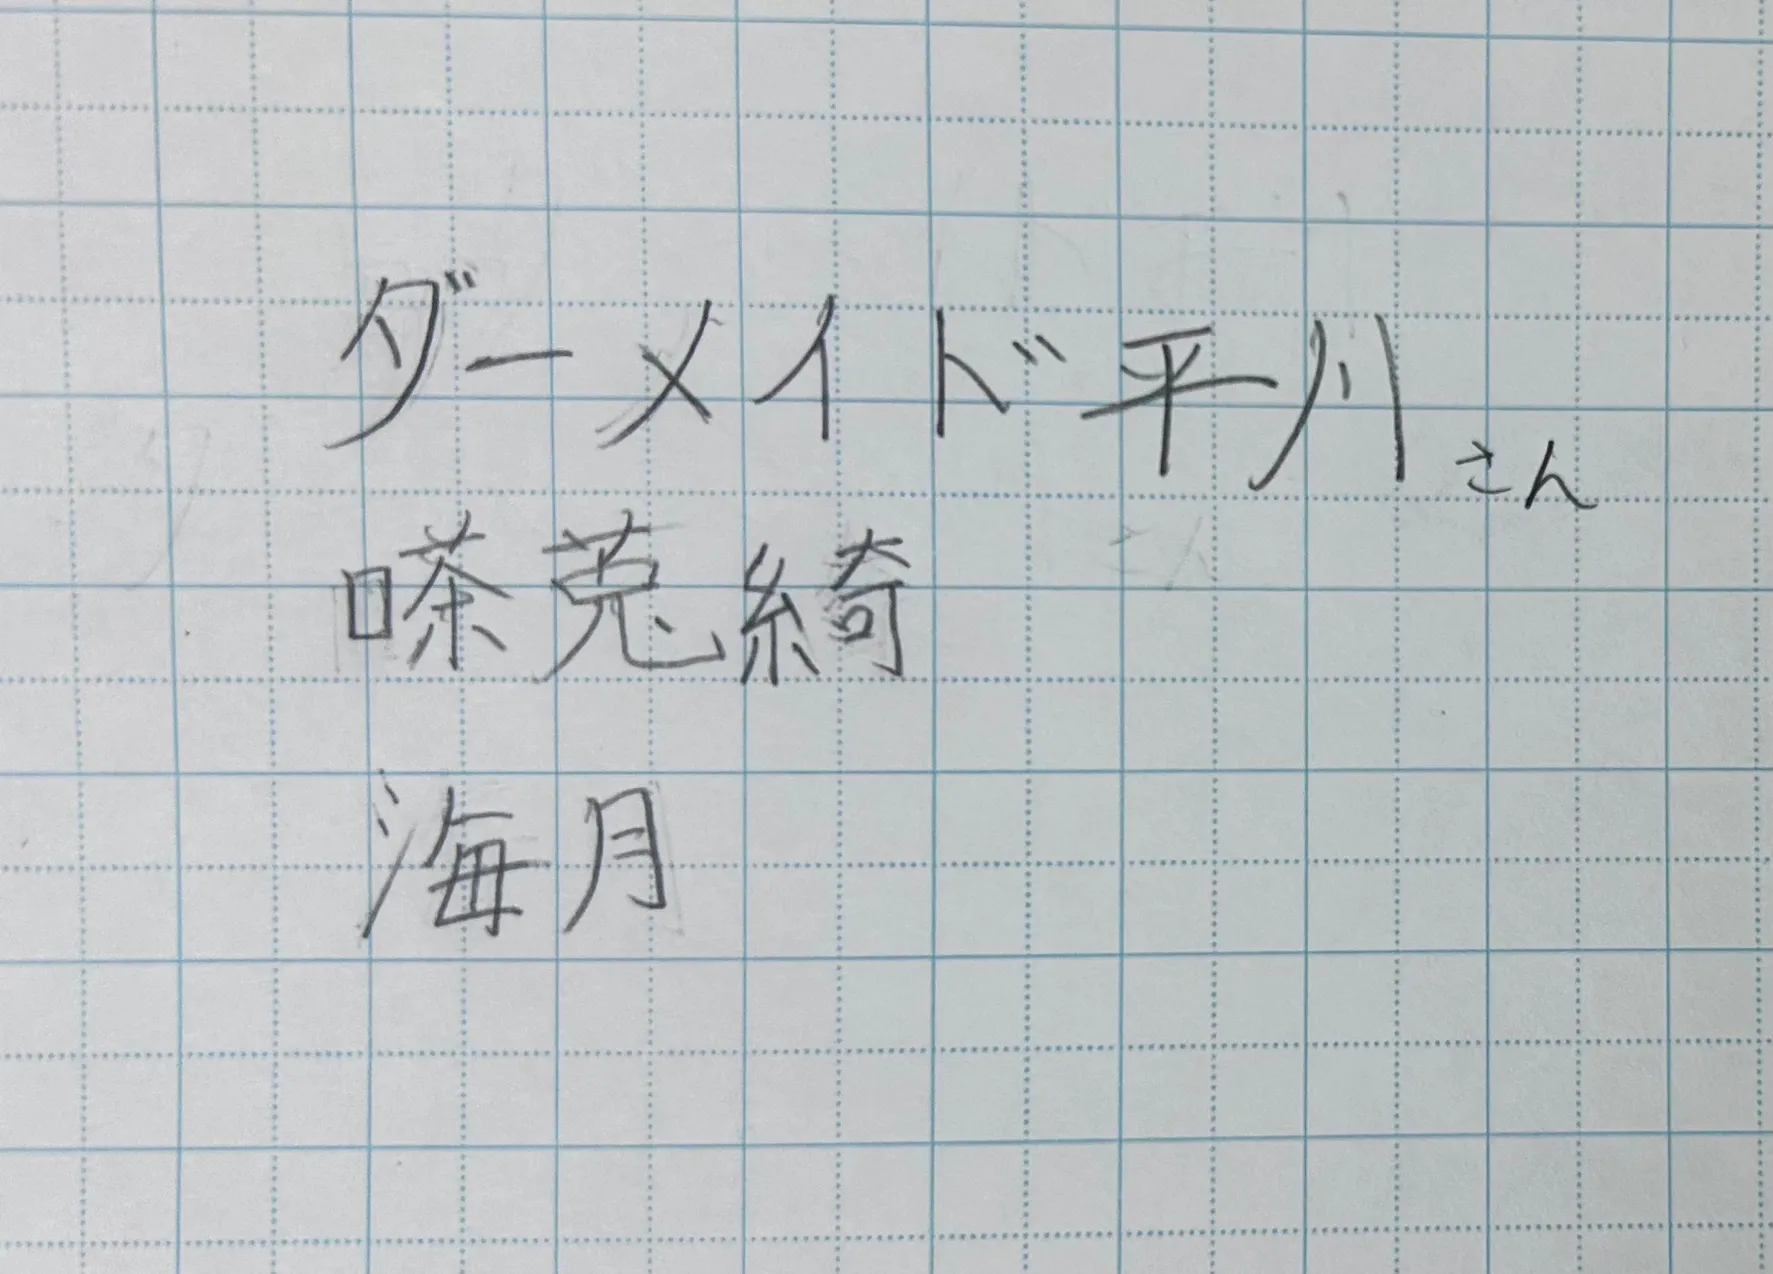 ダーメイド平川さん
嗏菟綺
海月